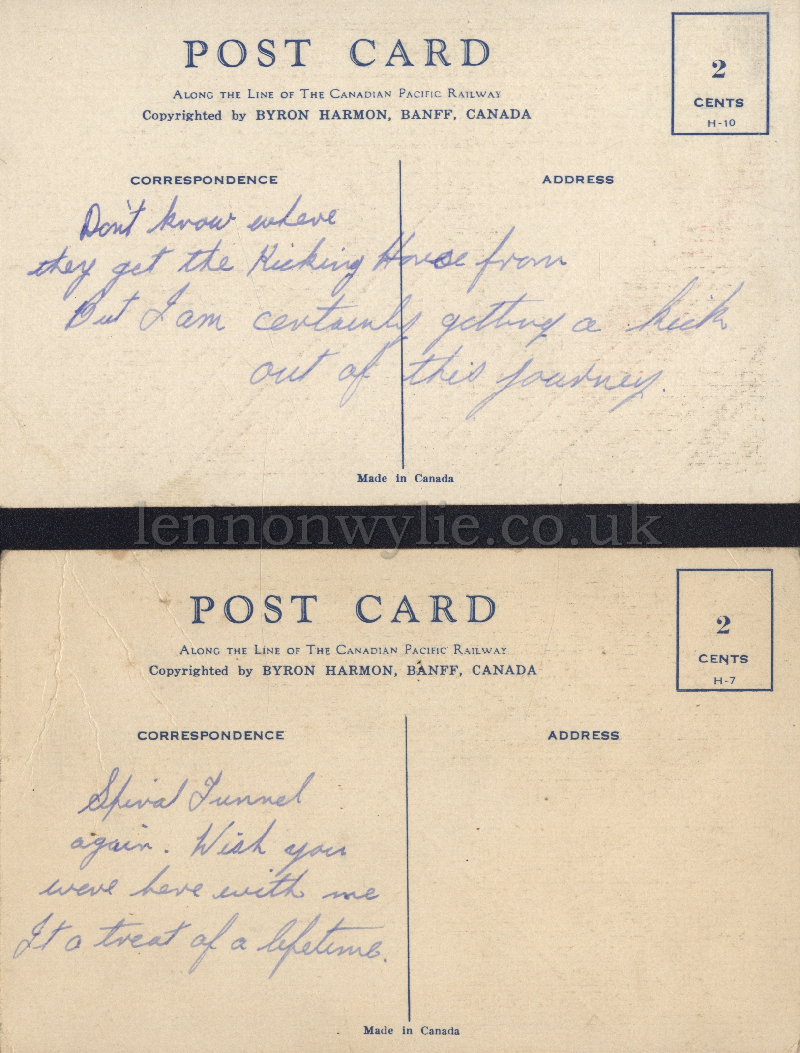 POST CARD
ALONG THE LINE OF THE CANADIAN PACIFIC RAILWAY
Copyrighted by BYRON HARMON, BANFF, CANADA
2
CENTS
H-10
CORRESPONDENCE
ADDRESS
Don't know where
they get the Kicking Horse from
But I am certainly getting a kick
out of this journey.
Made in Canada
lennonwylie.co.uk
POST CARD
ALONG THE LINE OF THE CANADIAN PACIFIC RAILWAY
Copyrighted by BYRON HARMON, BANFF, CANADA
2
CENTS
H-7
CORRESPONDENCE
ADDRESS
Spiral Tunnel
again. Wish you
were here with me
It a treat of a lifetime.
Made in Canada